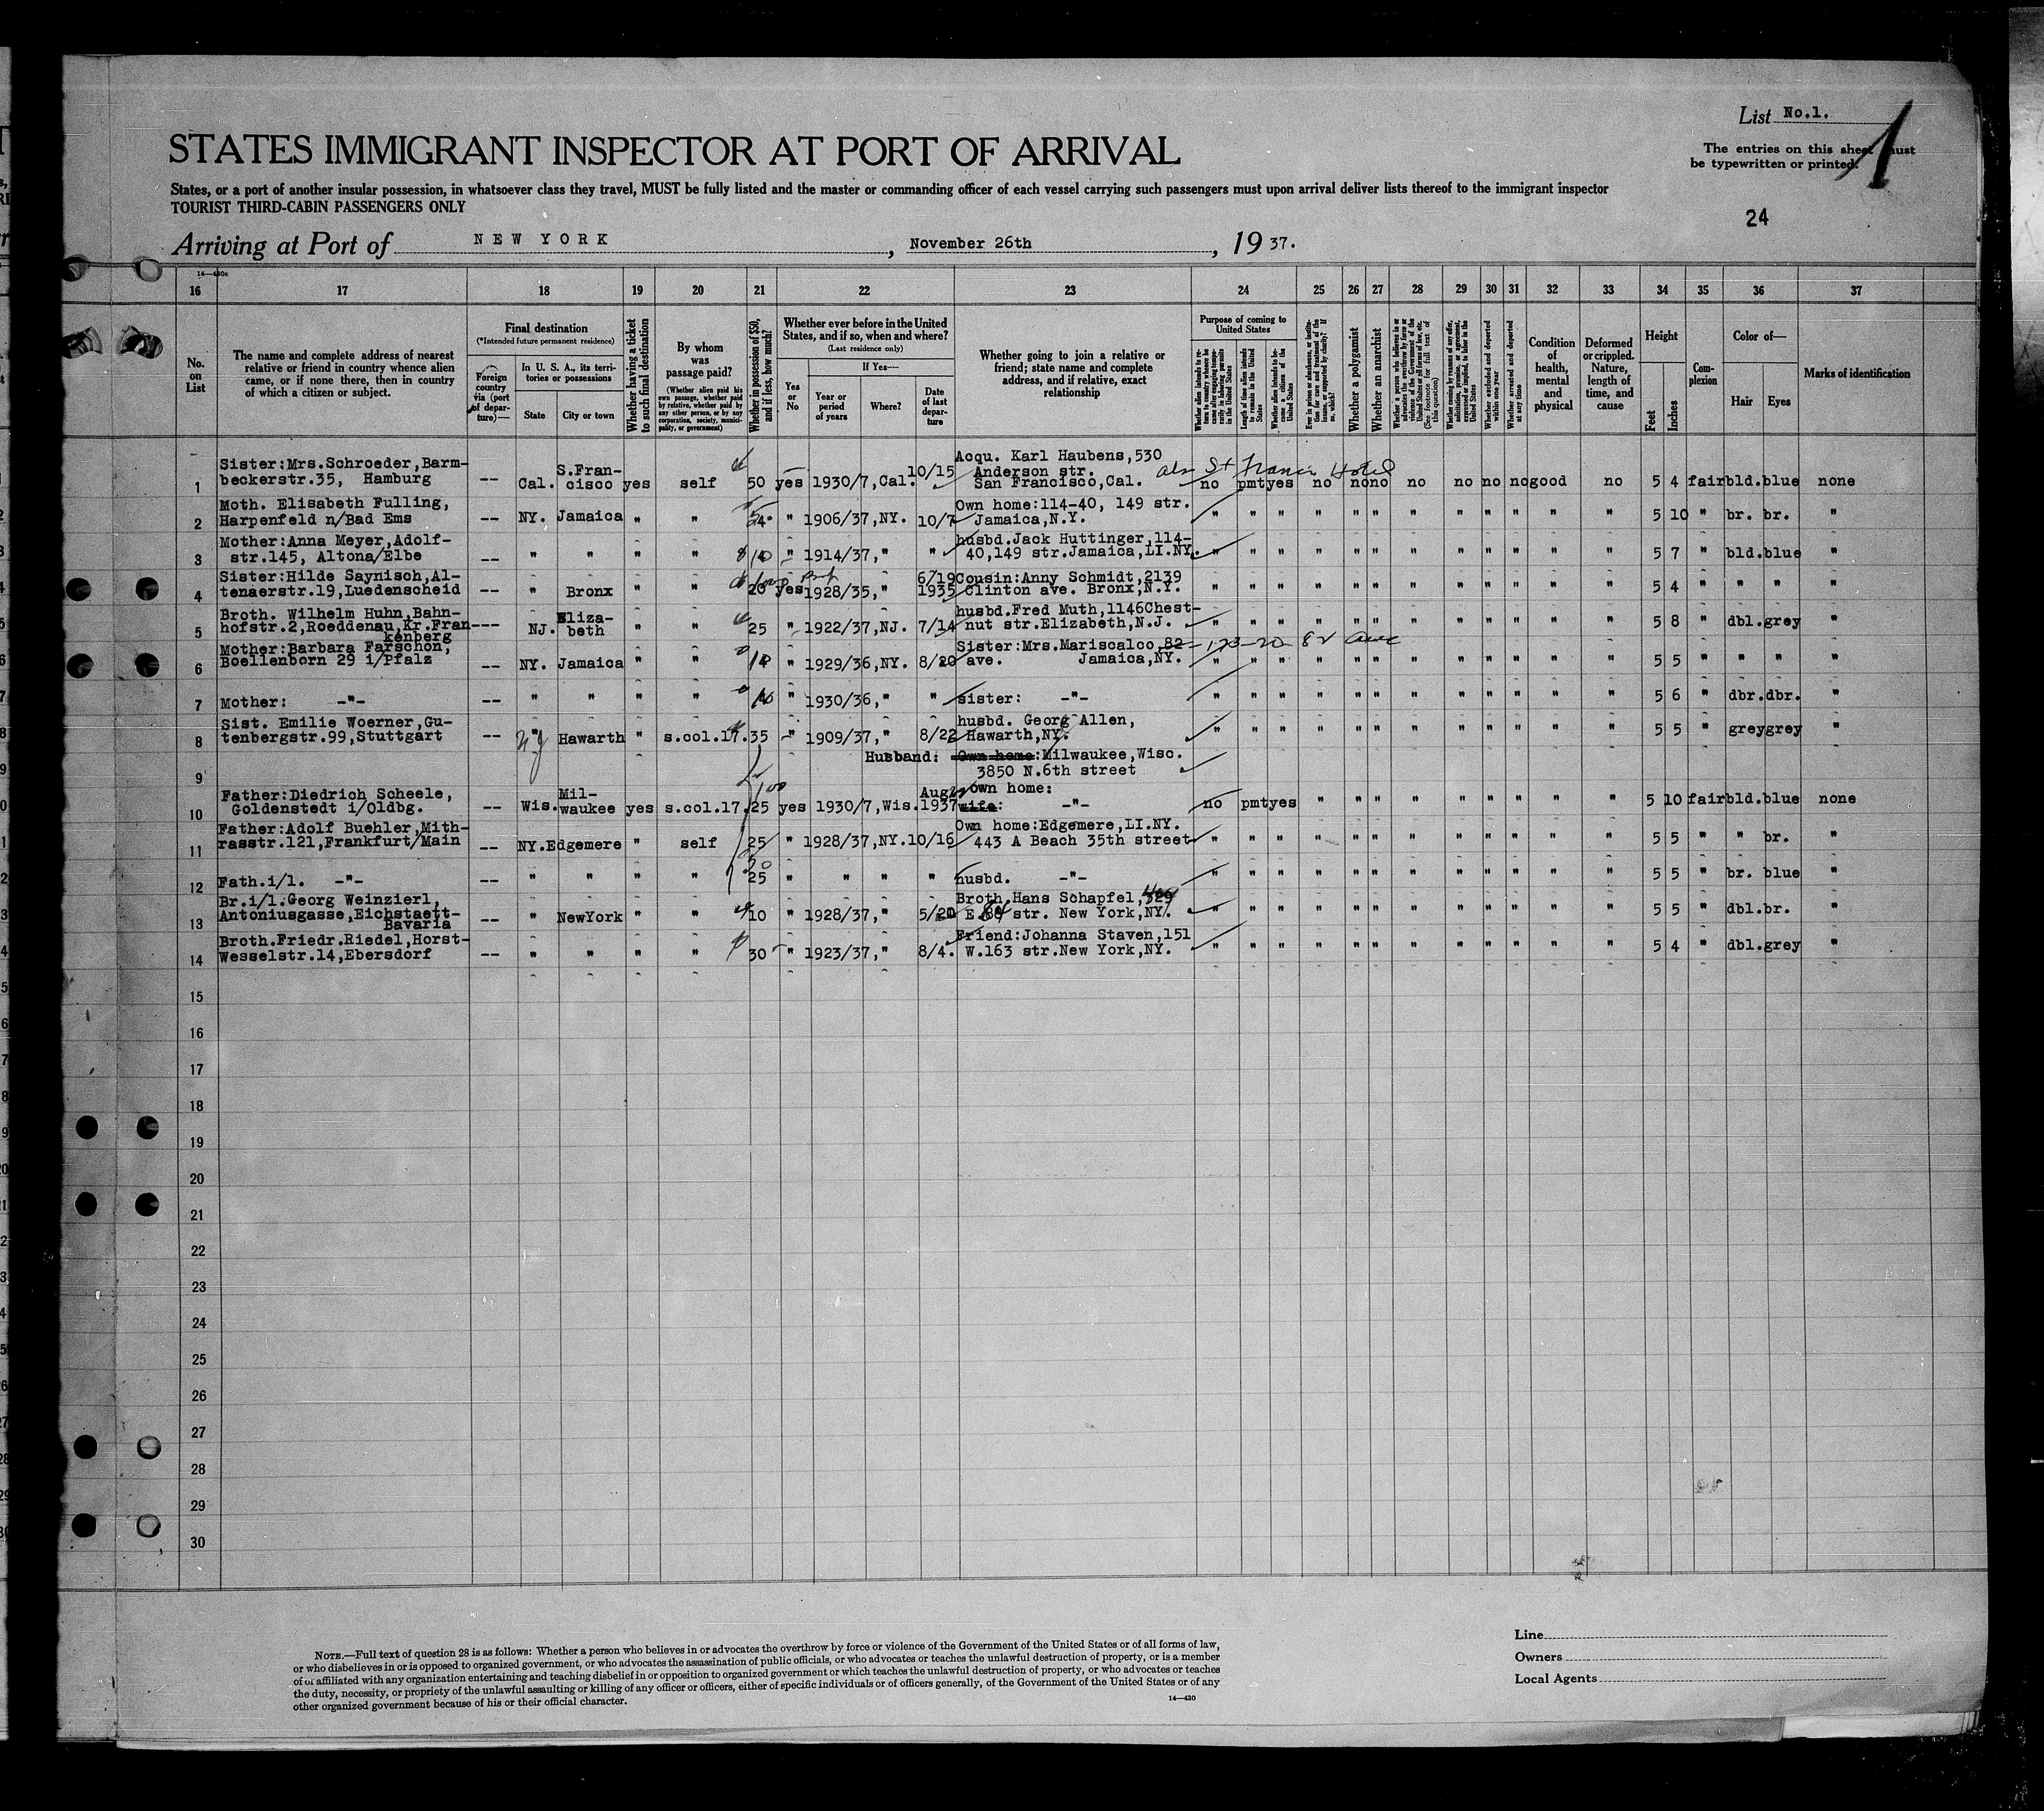 List No.1.
1
The entries on this sheet must
be typewritten or printed.
STATES IMMIGRANT INSPECTOR AT PORT OF ARRIVAL
States, or a port of another insular possession, in whatsoever class they travel, MUST be fully listed and the master or commanding officer of each vessel carrying such passengers must upon arrival deliver lists thereof to the immigrant inspector
TOURIST THIRD-CABIN PASSENGERS ONLY
24
Arriving at Port of NEW YORK, November 26th, 19 37.
16 17 18 19 20 21 22 23 24 25 26 27 28 29 30 31 32 33 34 35 36 37
No. on List
The name and complete address of nearest
relative or friend in country whence alien
came, or if none there, then in country
of which a citizen or subject.
Final destination
(*Intended future permanent residence)
Foreign country via (port of departure)—
In U. S. A., its territories or possessions
State
City or town
Whether having a ticket to such final destination
By whom was passage paid?
(Whether alien paid his own passage, whether paid by relative, whether paid by any other person, or by any corporation, society, municipality, or government)
Whether in possession of $50, and if less, how much?
Whether ever before in the United States, and if so, when and where?
(Last residence only)
Yes or No
If Yes—
Year or period of years
Where?
Date of last departure
Whether going to join a relative or
friend; state name and complete
address, and if relative, exact
relationship
Purpose of coming to United States
Whether alien intends to return to country whence he came after engaging temporarily in laboring pursuits in the United States
Length of time alien intends to remain in the United States
Whether alien intends to become a citizen of the United States
Whether a polygamist
Whether an anarchist
Whether excluded and deported within one year
Whether arrested and deported at any time
Condition of health, mental and physical
Deformed or crippled. Nature, length of time, and cause
Height
Feet
Inches
Complexion
Color of—
Hair
Eyes
Marks of identification
1 Sister:Mrs.Schroeder,Barm-
beckerstr.35, Hamburg -- Cal. S.Fran-
cisco yes self 50 yes 1930/7,Cal. 10/15 Acqu. Karl Haubens,530
Anderson str.
San Francisco,Cal. St Francis Hotel
no pmt yes no no no no no no no good no 5 4 fair bld. blue none
2 Moth. Elisabeth Fulling,
Harpenfeld n/Bad Ems -- NY. Jamaica " " " 1906/37,NY. 10/7 Own home:114-40, 149 str.
Jamaica,N.Y. " " " " " " " " " " " " 5 10 " br. br. "
3 Mother:Anna Meyer,Adolf-
str.145, Altona/Elbe -- " " " " " 1914/37," " husbd.Jack Huttinger,114-
40,149 str.Jamaica,LI.NY. " " " " " " " " " " " " 5 7 " bld. blue "
4 Sister:Hilde Saynisch,Al-
tenaerstr.19,Luedenscheid -- " Bronx " " 20 yes 1928/35," 6/19
1935 Cousin:Anny Schmidt,2139
Clinton ave. Bronx,N.Y. " " " " " " " " " " " " 5 4 " " " "
5 Broth. Wilhelm Huhn,Bahn-
hofstr.2,Roeddenau,Kr.Fran
kenberg --- NJ. Eliza-
beth " " 25 " 1922/37,NJ. 7/14 husbd.Fred Muth,1146Chest-
nut str.Elizabeth,N.J. " " " " " " " " " " " " 5 8 " dbl. grey "
6 Mother:Barbara Farschon,
Boellenborn 29 i/Pfalz -- NY. Jamaica " " " 1929/36,NY. 8/20 Sister:Mrs.Mariscalco,82-
ave. Jamaica,NY. 173-20 82 ave
" " " " " " " " " " " " 5 5 " " " "
7 Mother: -"- -- " " " " " 1930/36," " sister: -"- " " " " " " " " " " " " 5 6 " dbr. dbr. "
8 Sist. Emilie Woerner,Gu-
tenbergstr.99,Stuttgart -- " NJ Hawarth " s.col.17. 35 " 1909/37," 8/22 husbd. Georg Allen,
Hawarth,NY. " " " " " " " " " " " " 5 5 " grey grey "
9 Husband: Own home:Milwaukee,Wisc.
3850 N.6th street
10 Father:Diedrich Scheele,
Goldenstedt i/Oldbg. -- Wis. Mil-
waukee yes s.col.17. 25 100 yes 1930/7,Wis. Aug
1937 own home:
wife: -"- no pmt yes " " " " " " " " " 5 10 fair bld. blue none
11 Father:Adolf Buehler,Mith-
rasstr.121,Frankfurt/Main -- NY. Edgemere " self 25 " 1928/37,NY. 10/16 Own home:Edgemere,LI.NY.
443 A Beach 35th street " " " " " " " " " " " " 5 5 " " br. "
12 Fath.i/l. -"- -- " " " " 25 " " " " husbd. -"- " " " " " " " " " " " " 5 5 " br. blue "
13 Br.i/l.Georg Weinzierl,
Antoniusgasse,Eichstaett-
Bavaria -- " NewYork " " 10 " 1928/37," 5/20 Broth.Hans Schapfel,
E.84 str. New York,NY. " " " " " " " " " " " " 5 5 " dbl. br. "
14 Broth.Friedr.Riedel,Horst-
Wesselstr.14,Ebersdorf -- " " " " 30 " 1923/37," 8/4. Friend:Johanna Staven,151
W.163 str.New York,NY. " " " " " " " " " " " " 5 4 " dbl. grey "
15
16
17
18
19
20
21
22
23
24
25
26
27
28
29
30
NOTE.—Full text of question 28 is as follows: Whether a person who believes in or advocates the overthrow by force or violence of the Government of the United States or of all forms of law,
or who disbelieves in or is opposed to organized government, or who advocates the assassination of public officials, or who advocates or teaches the unlawful destruction of property, or is a member
of or affiliated with any organization entertaining and teaching disbelief in or opposition to organized government or which teaches the unlawful destruction of property, or who advocates or teaches
the duty, necessity, or propriety of the unlawful assaulting or killing of any officer or officers, either of specific individuals or of officers generally, of the Government of the United States or of any
other organized government because of his or their official character.
14—430
Line
Owners
Local Agents